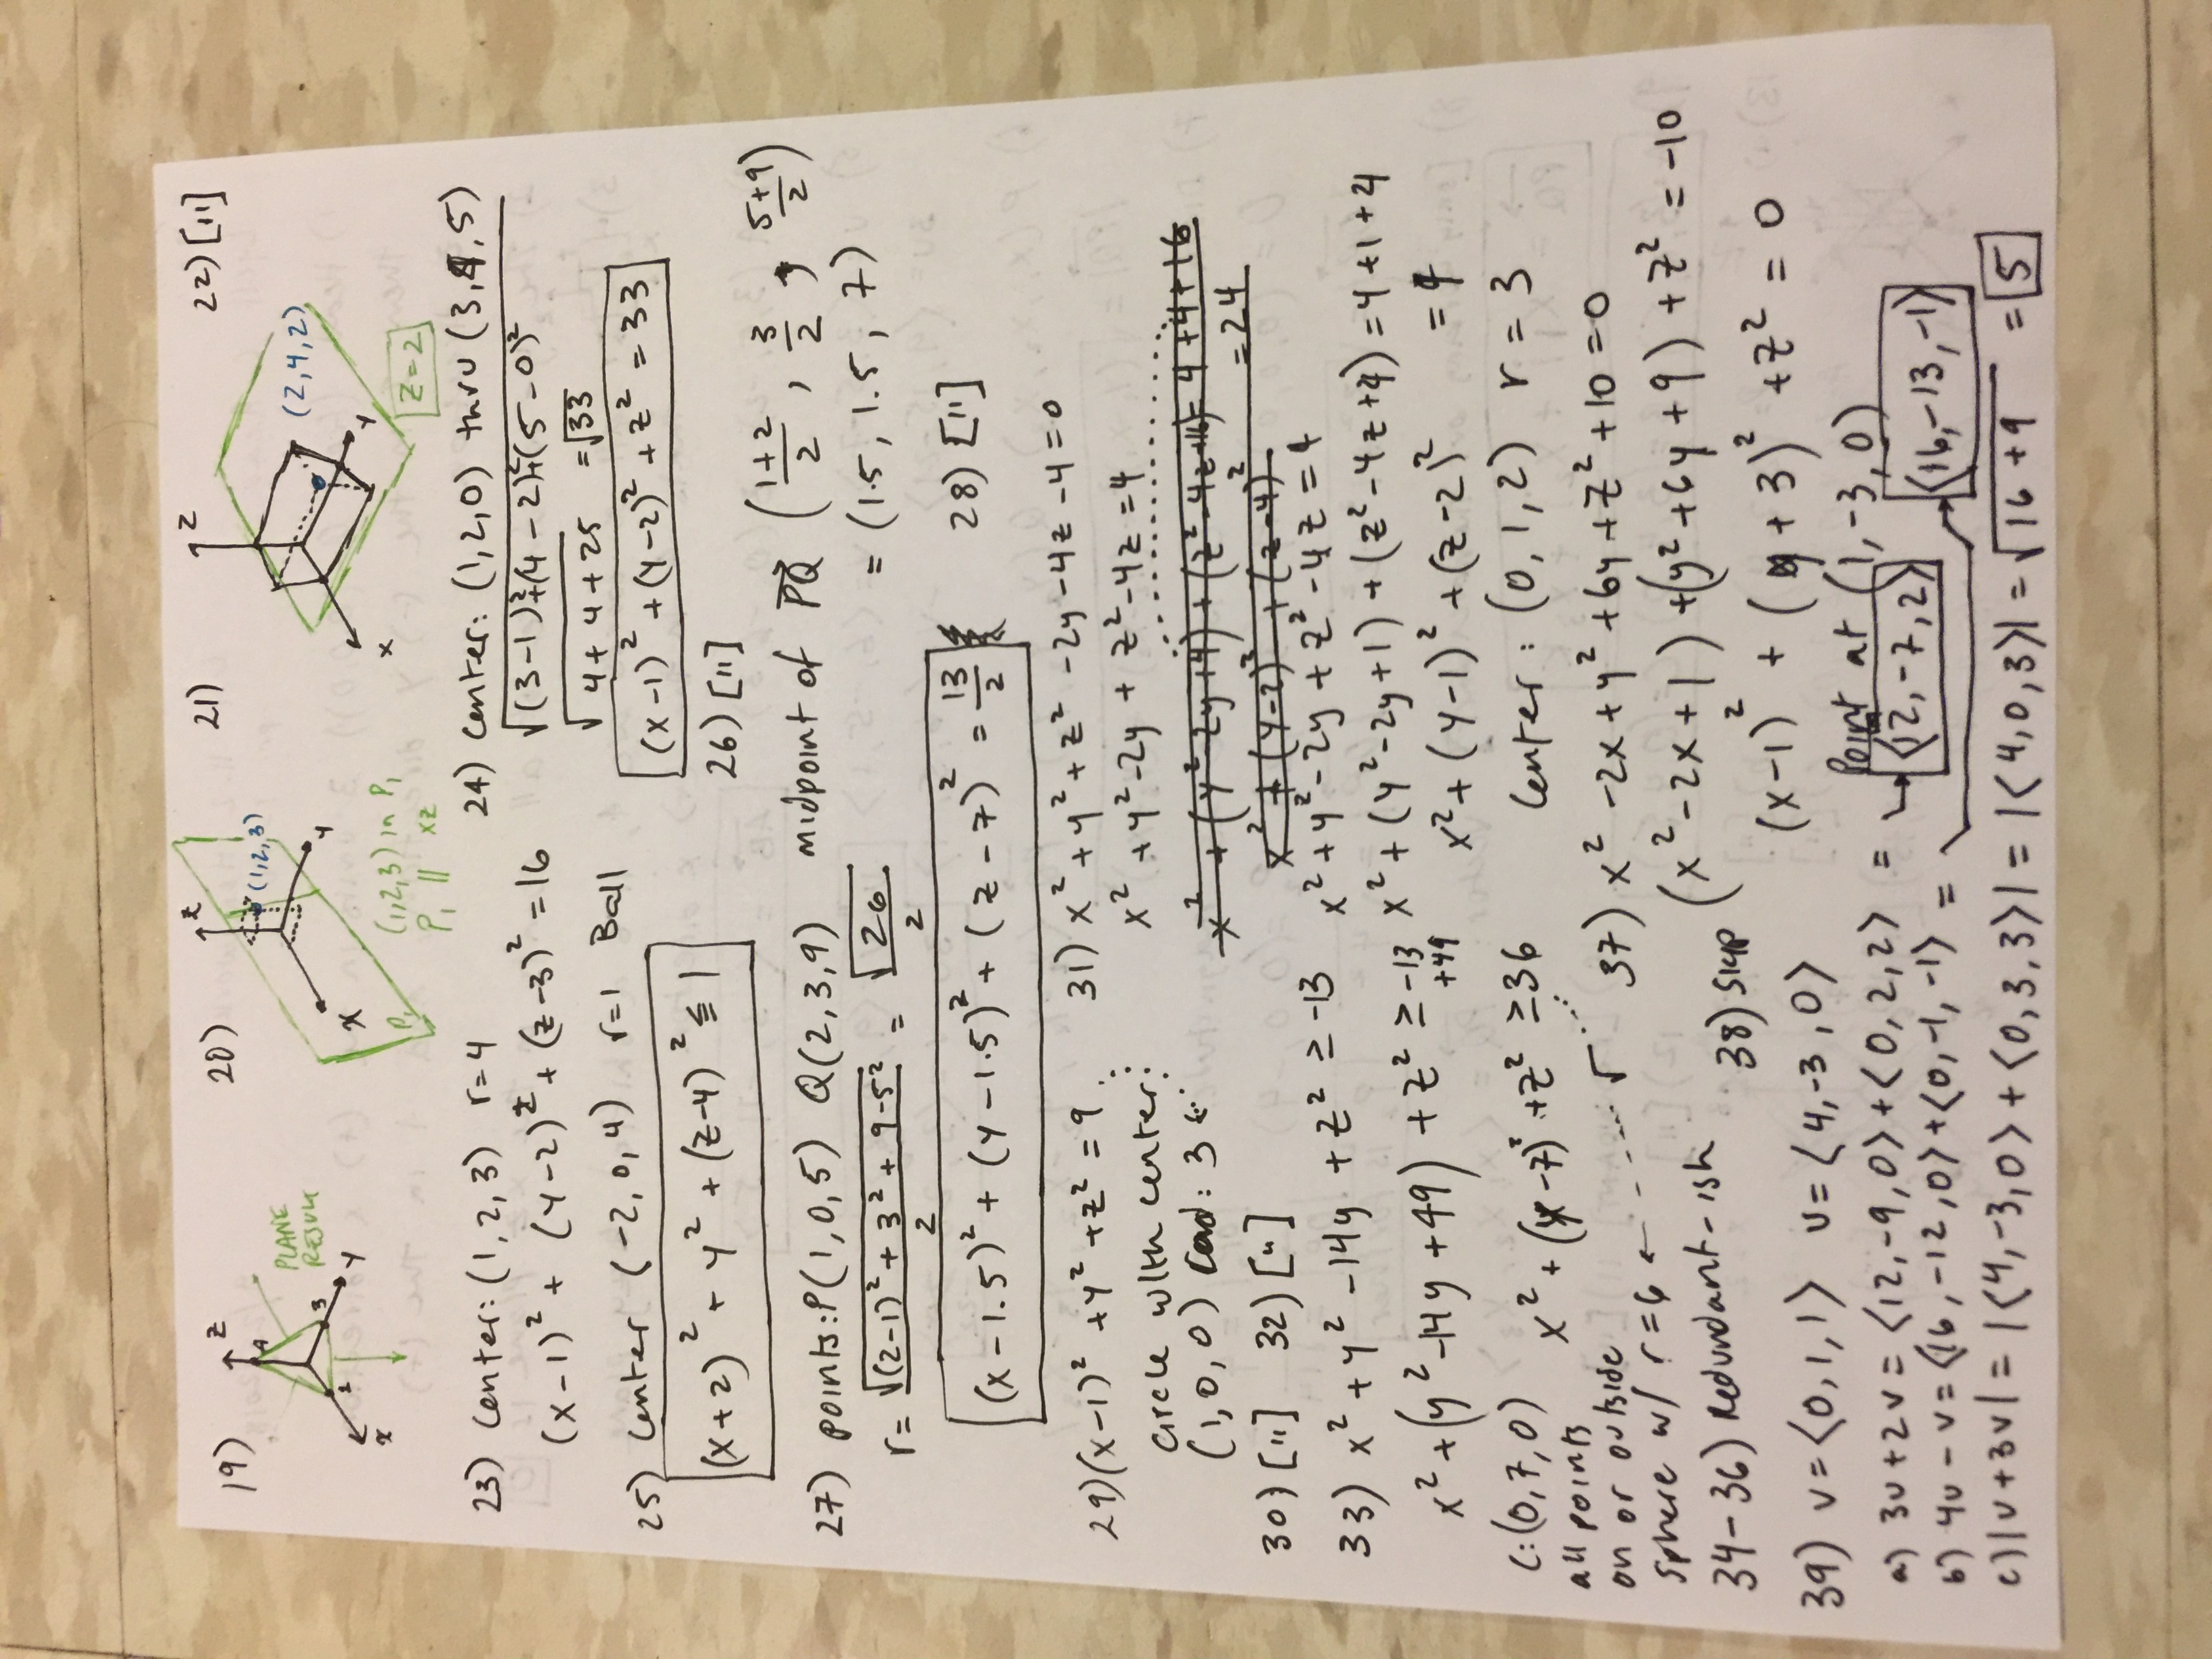 19) Z 4 2 3 X Y PLANE RESULT
20) Z (1,2,3) X Y P₁
(1,2,3) in P₁
P₁ || xz
21) Z (2,4,2) X Y
Z=2
22) [11]
23) center: (1,2,3) r=4
(x-1)² + (y-2)² + (z-3)² = 16
24) center: (1,2,0) thru (3,4,5)
√(3-1)²+(4-2)²+(5-0)²
√4+4+25 = √33
(x-1)² + (y-2)² + z² = 33
25) center (-2,0,4) r=1 Ball
(x+2)² + y² + (z-4)² ≤ 1
26) [11]
27) points: P(1,0,5) Q(2,3,9) midpoint of PQ (1+2/2, 3/2, 5+9/2)
= (1.5, 1.5, 7)
r = √(2-1)² + 3² + 9-5²/2 = √26/2
(x-1.5)² + (y-1.5)² + (z-7)² = 13/2
28) [11]
29) (x-1)² + y² + z² = 9
circle with center:
(1,0,0) rad: 3
30) [11] 32) [11]
31) x² + y² + z² - 2y - 4z - 4 = 0
x² + y² - 2y + z² - 4z = 4
x² + (y² - 2y + 4) + (z² - 4z + 16) = 4 + 4 + 16
= 24
x² + (y-2)² + (z-4)²
x² + y² - 2y + z² - 4z = 4
x² + (y² - 2y + 1) + (z² - 4z + 4) = 4 + 1 + 4
x² + (y-1)² + (z-2)² = 9
center: (0,1,2) r = 3
33) x² + y² - 14y + z² ≥ -13
x² + (y² - 14y + 49) + z² ≥ -13
+49
x² + (y-7)² + z² ≥ 36
√
C: (0,7,0)
all points
on or outside
sphere w/ r=6
34-36) Redundant-ish
37) x² - 2x + y² + 6y + z² + 10 = 0
(x² - 2x + 1) + (y² + 6y + 9) + z² = -10
(x-1)² + (y+3)² + z² = 0
Point at (1,-3,0)
38) Skip
39) v = ⟨0,1,1⟩ u = ⟨4,-3,0⟩
a) 3u + 2v = ⟨12,-9,0⟩ + ⟨0,2,2⟩ = ⟨12,-7,2⟩
b) 4u - v = ⟨16,-12,0⟩ + ⟨0,-1,-1⟩ = ⟨16,-13,-1⟩
c) |u + 3v| = |⟨4,-3,0⟩ + ⟨0,3,3⟩| = |⟨4,0,3⟩| = √16 + 9 = 5